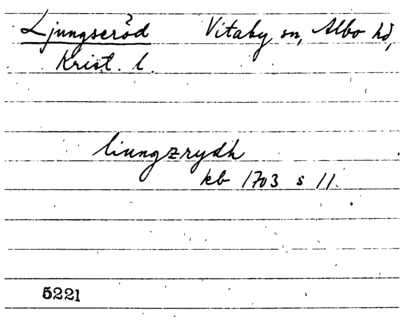 Ljungseröd Vitaby sn, Albo hd,
Krist. l.
liungzrydh
kb 1703 s 11.
5221